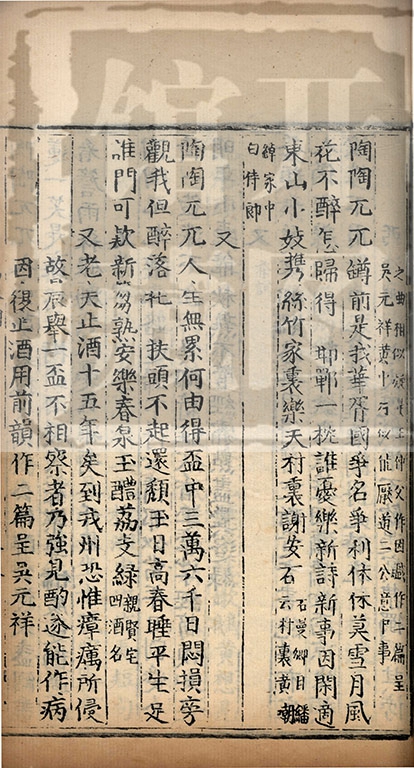 之曲相似疑是王仲父作因戲作二篇呈
吳元祥黃中行似能厭道二公意中事
陶陶兀兀鐏前是我華胥國爭名爭利休休莫雪月風
花不醉怎歸得 邯鄲一枕誰憂樂新詩新事因閑適
東山小妓携絲竹家裏樂天村裏謝安石
石曼卿自嘲
云村裏黃繙
綽家中
白侍郎
又
陶陶兀兀人生無累何由得盃中三萬六千日悶損旁
觀我但醉落托 扶頭不起還頹玉日高春睡平生足
誰門可欵新篘熟安樂春泉玉醴荔支綠
親賢宅
四酒名
又老夫止酒十五年矣到戎州恐惟瘴癘所侵
故晨舉一盃不相察者乃強見酌遂能作病
因復止酒用前韻作二篇呈吳元祥